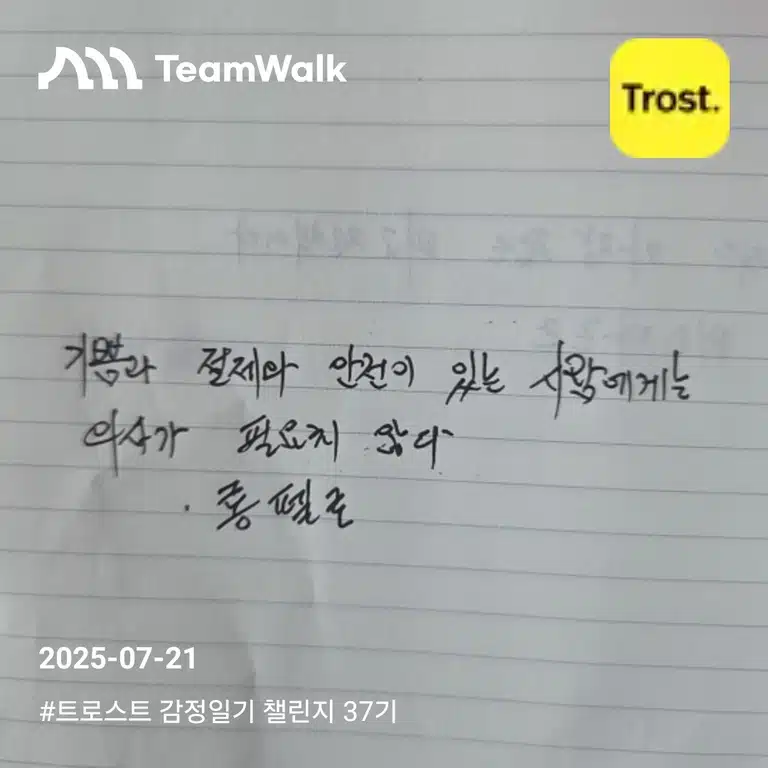 TeamWalk
Trost.
기쁨과 절제와 안전이 있는 사람에게는
의사가 필요치 않다
. 롱펠로
2025-07-21
#트로스트 감정일기 챌린지 37기